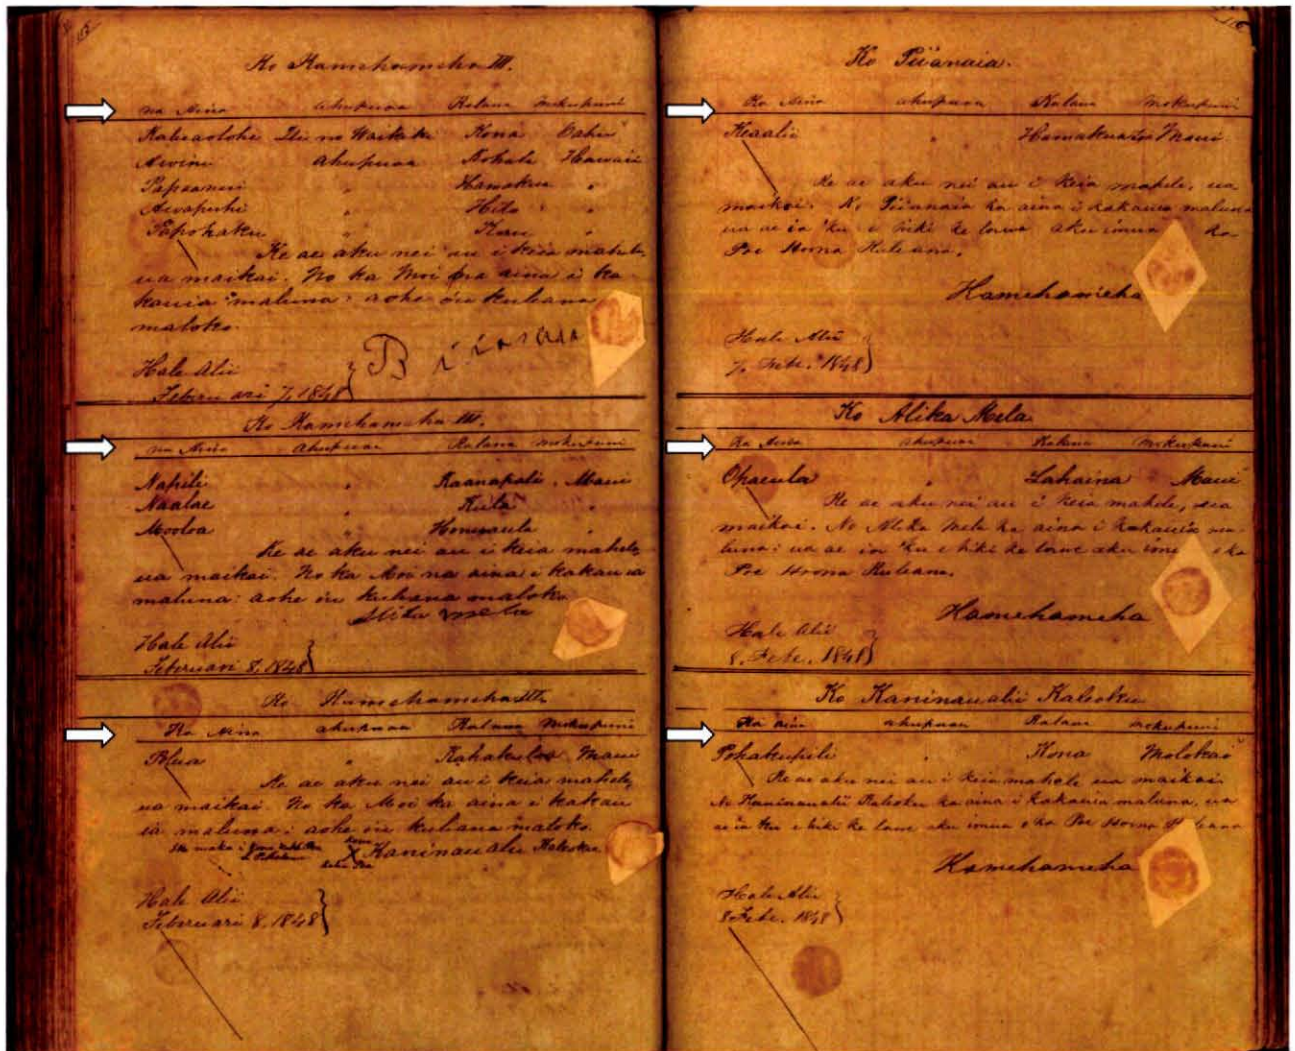 115
Ko Kamehameha III.
na Aina ahupuaa Kalana Mokupuni
Kaluaolohe Ili no Waikiki Kona Oahu
Awini Ahupuaa Kohala Hawaii
Papaanui " Hamakua "
Awapuhi " Hilo "
Papohaku " Kau "
Ke ae aku nei au i keia mahele,
ua maikai. No ka Moi na aina i ka-
kauia maluna: aohe o'u kuleana
maloko.
Piianaia
Hale Alii
Feberuari 7, 1848
Ko Kamehameha III.
na Aina ahupuaa Kalana mokupuni
Napili " Kaanapali Maui
Naalae " Kula "
Mooloa " Honuaula "
Ke ae aku nei au i keia mahele,
ua maikai. No ka Moi na aina i kakauia
maluna: aohe o'u kuleana maloko.
Alika Mela
Hale Alii
Feberuari 8, 1848
Ko Kamehameha III.
Ka Aina ahupuaa Kalana Mokupuni
Polua " Kahakuloa Maui
Ke ae aku nei au i keia mahele,
ua maikai. No ka Moi ka aina i kakau
ia maluna: aohe o'u kuleana maloko.
X Kaninaualii Kaleoku
Hale Alii
Feberuari 8, 1848
116
Ko Piianaia.
Ka Aina ahupuaa Kalana Mokupuni
Keaalii " Hamakualoa Maui
Ke ae aku nei au i keia mahele, ua
maikai. No Piianaia ka aina i kakauia maluna
ua ae ia 'ku e hiki ke lawe aku imua o ka
Poe Hoona Kuleana.
Kamehameha
Hale Alii
7. Febe. 1848
Ko Alika Mela
Ka Aina ahupuaa Kalana Mokupuni
Opaeula " Lahaina Maui
Ke ae aku nei au i keia mahele, ua
maikai. No Alika Mela ka aina i kakauia ma-
luna: ua ae ia 'ku e hiki ke lawe aku imua o ka
Poe Hoona Kuleana.
Kamehameha
Hale Alii
8. Febe. 1848
Ko Kaninaualii Kaleoku
Ka aina ahupuaa Kalana mokupuni
Pohakupili " Kona Molokai
Ke ae aku nei au i keia mahele ua maikai
No Kaninaualii Kaleoku ka aina i kakauia maluna, ua
ae ia 'ku e hiki ke lawe aku imua o ka Poe Hoona Kuleana
Kamehameha
Hale Alii
8 Febe. 1848